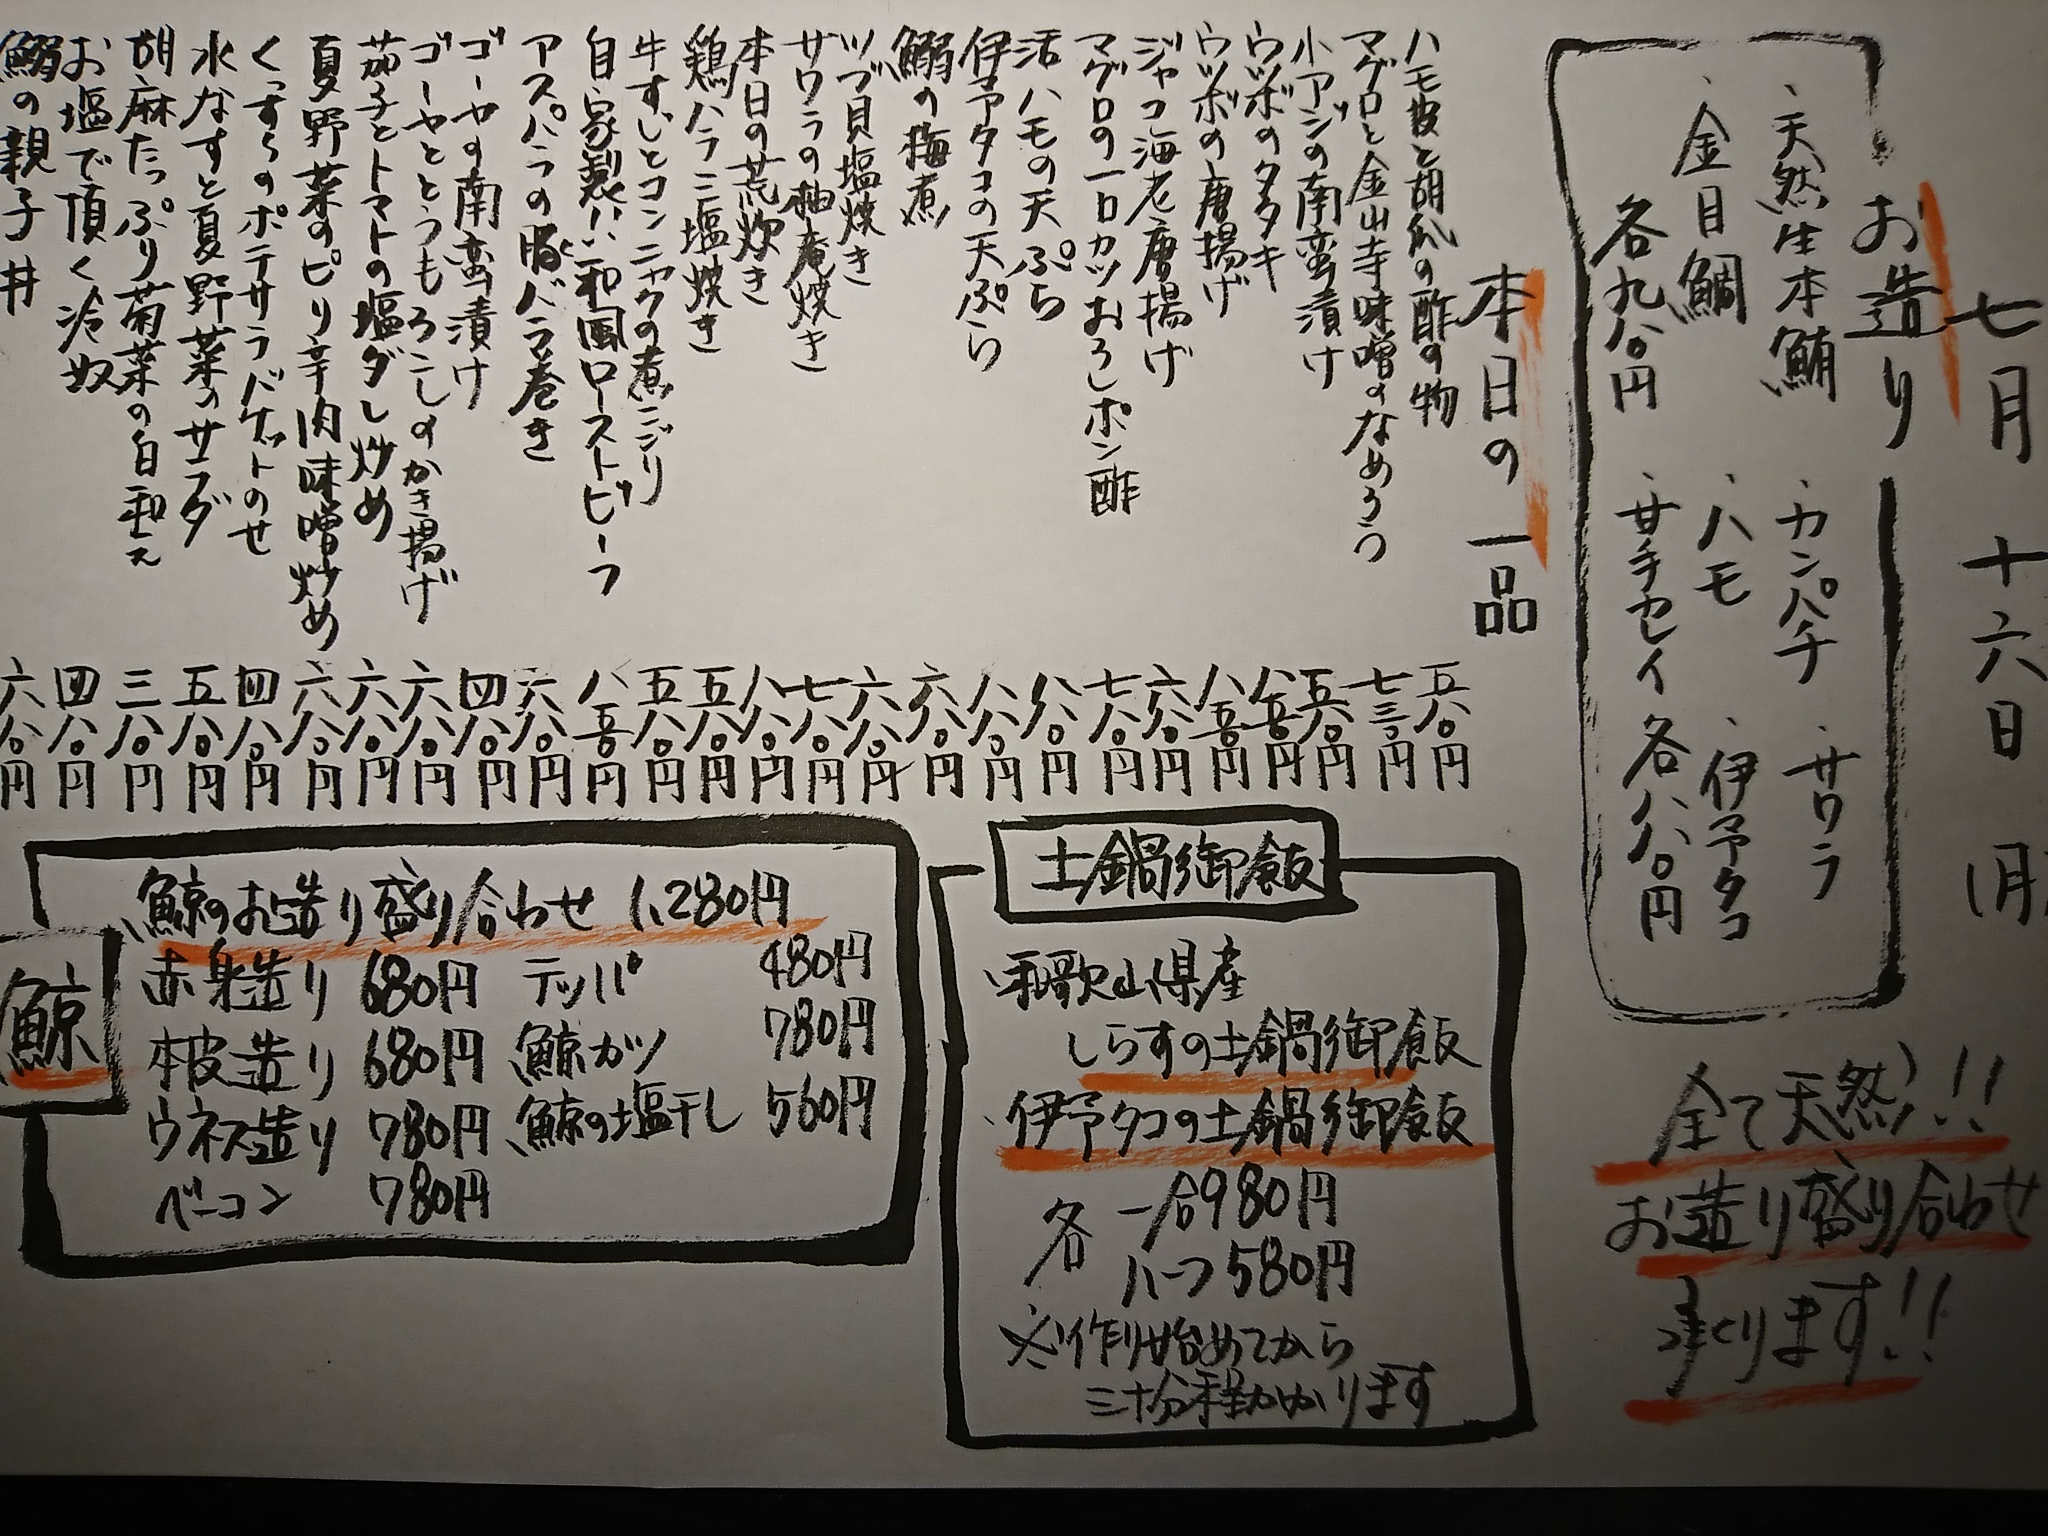 七月 十六日 (月
お造り
・天然生本鮪
・金目鯛
各九八〇円
・カンパチ ・サワラ
・ハモ ・伊予タコ
・サ手セイ 各八八〇円
全て天然!!
お造り盛り合わせ
承ります!!
本日の一品
ハモ皮と胡瓜の酢の物 五八〇円
マグロと金山寺味噌のなめろう 七三〇円
小アジの南蛮漬け 五八〇円
ウツボのタタキ 八五〇円
ウツボの唐揚げ 八五〇円
ジャコ海老唐揚げ 六八〇円
マグロの一口カツおろしポン酢 七八〇円
活ハモの天ぷら 八八〇円
伊予タコの天ぷら 八八〇円
鰯の梅煮 六八〇円
ツブ貝塩焼き 六八〇円
サワラの柚庵焼き 七八〇円
本日の荒炊き 八八〇円
鶏ハラミ塩焼き 五八〇円
牛すじとコンニャクの煮こごり 五八〇円
自家製!!和風ローストビーフ 八五〇円
アスパラの豚バラ巻き 六八〇円
ゴーヤの南蛮漬け 四八〇円
ゴーヤととうもろこしのかき揚げ 六八〇円
茄子とトマトの塩ダレ炒め 六八〇円
夏野菜のピリ辛肉味噌炒め 六八〇円
くっすらのポテサラバケットのせ 四八〇円
水なすと夏野菜のサラダ 五八〇円
胡麻たっぷり菊菜の白和え 三八〇円
お塩で頂く冷奴 四八〇円
鰯の親子丼 六八〇円
土鍋御飯
・和歌山県産
しらすの土鍋御飯
・伊予タコの土鍋御飯
各 一合980円
ハーフ580円
※作り始めてから
三十分程かかります
鯨
鯨のお造り盛り合わせ 1,280円
赤身造り 680円 テッパ 480円
本皮造り 680円 鯨カツ 780円
ウネス造り 780円 鯨の塩干し 560円
ベーコン 780円